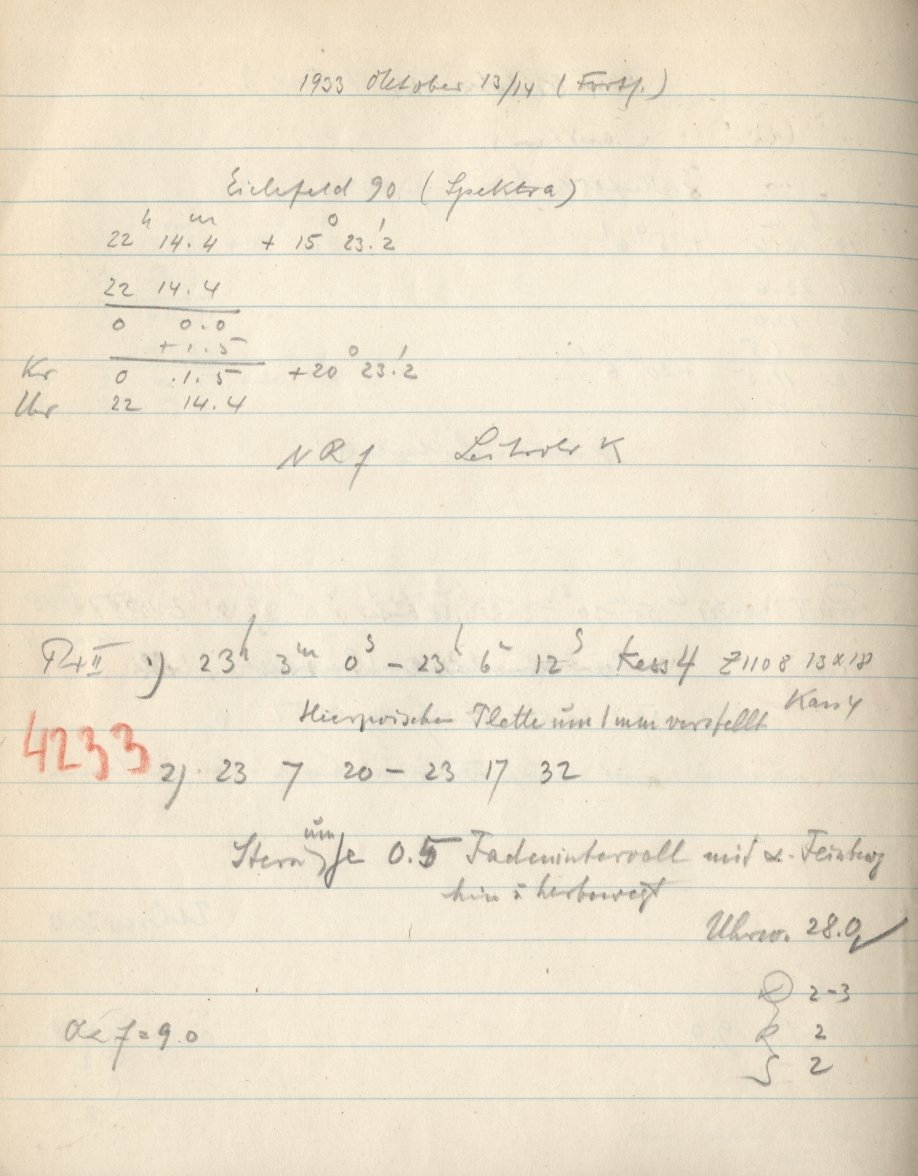 1933 Oktober 13/14 (Forts.)
Eichfeld 90 (Spektra)
22h 14m.4 + 15° 23!2
22 14.4
0 0.0
+1.5
Kr 0 1.5 +20° 23!2
Uhr 22 14.4
Leitrohr K
1) 23h 3m 0s – 23h 6m 12s Kass 4 Z1108 13x18
Kass 4
Hierzwischen Platte um 1 mm verstellt
4233 2) 23 7 20 – 23 17 32
Stern um je 0.5 Fadenintervall mit α-Feinbewg
hin u herbewegt
Uhrw. 28.0
2-3
f = 9.0
R 2
S 2